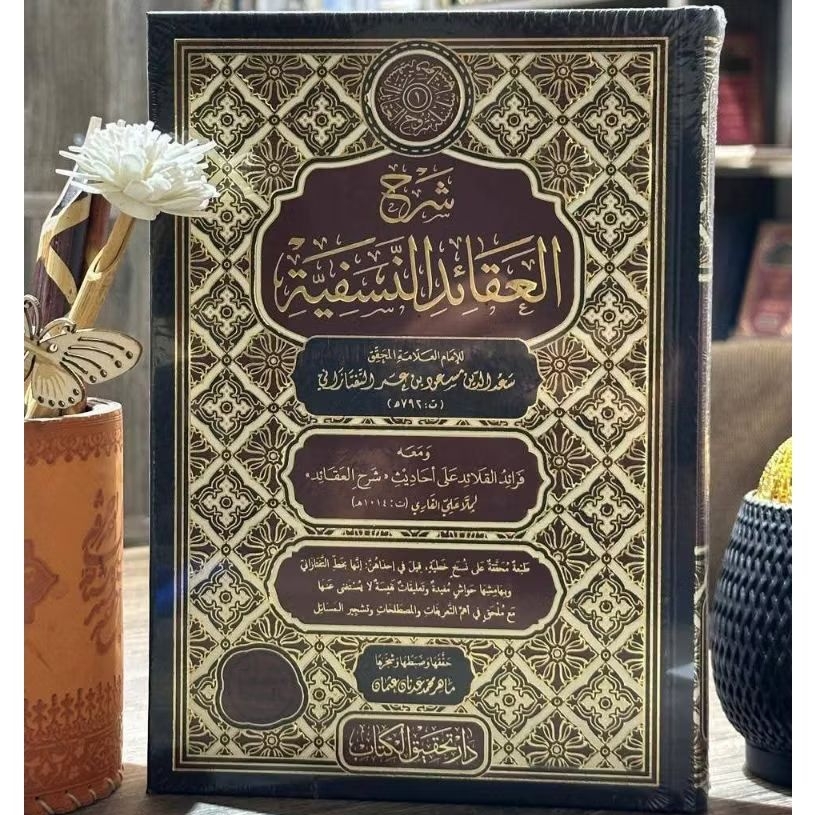 ١
شَرْح
العَقَائِدِ النَّسَفِيَّة
للإمام العلامة المحقق
سعد الدين مسعود بن عمر التفتازاني
(ت: ٧٩٢هـ)
ومعه
فرائد القلائد على أحاديث «شرح العقائد»
لملا علي القاري (ت: ١٠١٤هـ)
طبعة محققة على نسخ خطية، قيل في إحداهن: إنها بخط التفتازاني
وبهامشها حواش مفيدة وتعليقات نفيسة لا يستغنى عنها
مع ملحق في أهم التعريفات والمصطلحات وتشجير المسائل
حققها وضبطها وشجرها
ماهر محمد عدنان عثمان
دار تحقيق الكتاب